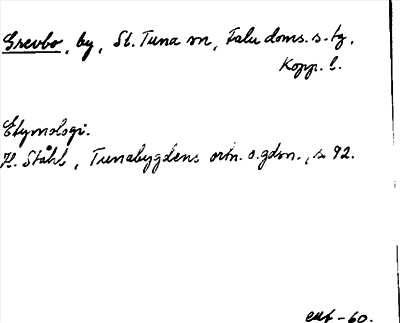 Grevbo, by, St. Tuna sn, Falu doms. s. tg.
Kopp. l.
Etymologi.
H. Ståhl, Tunabygdens ortn. o. gdsn., s. 92.
-60.